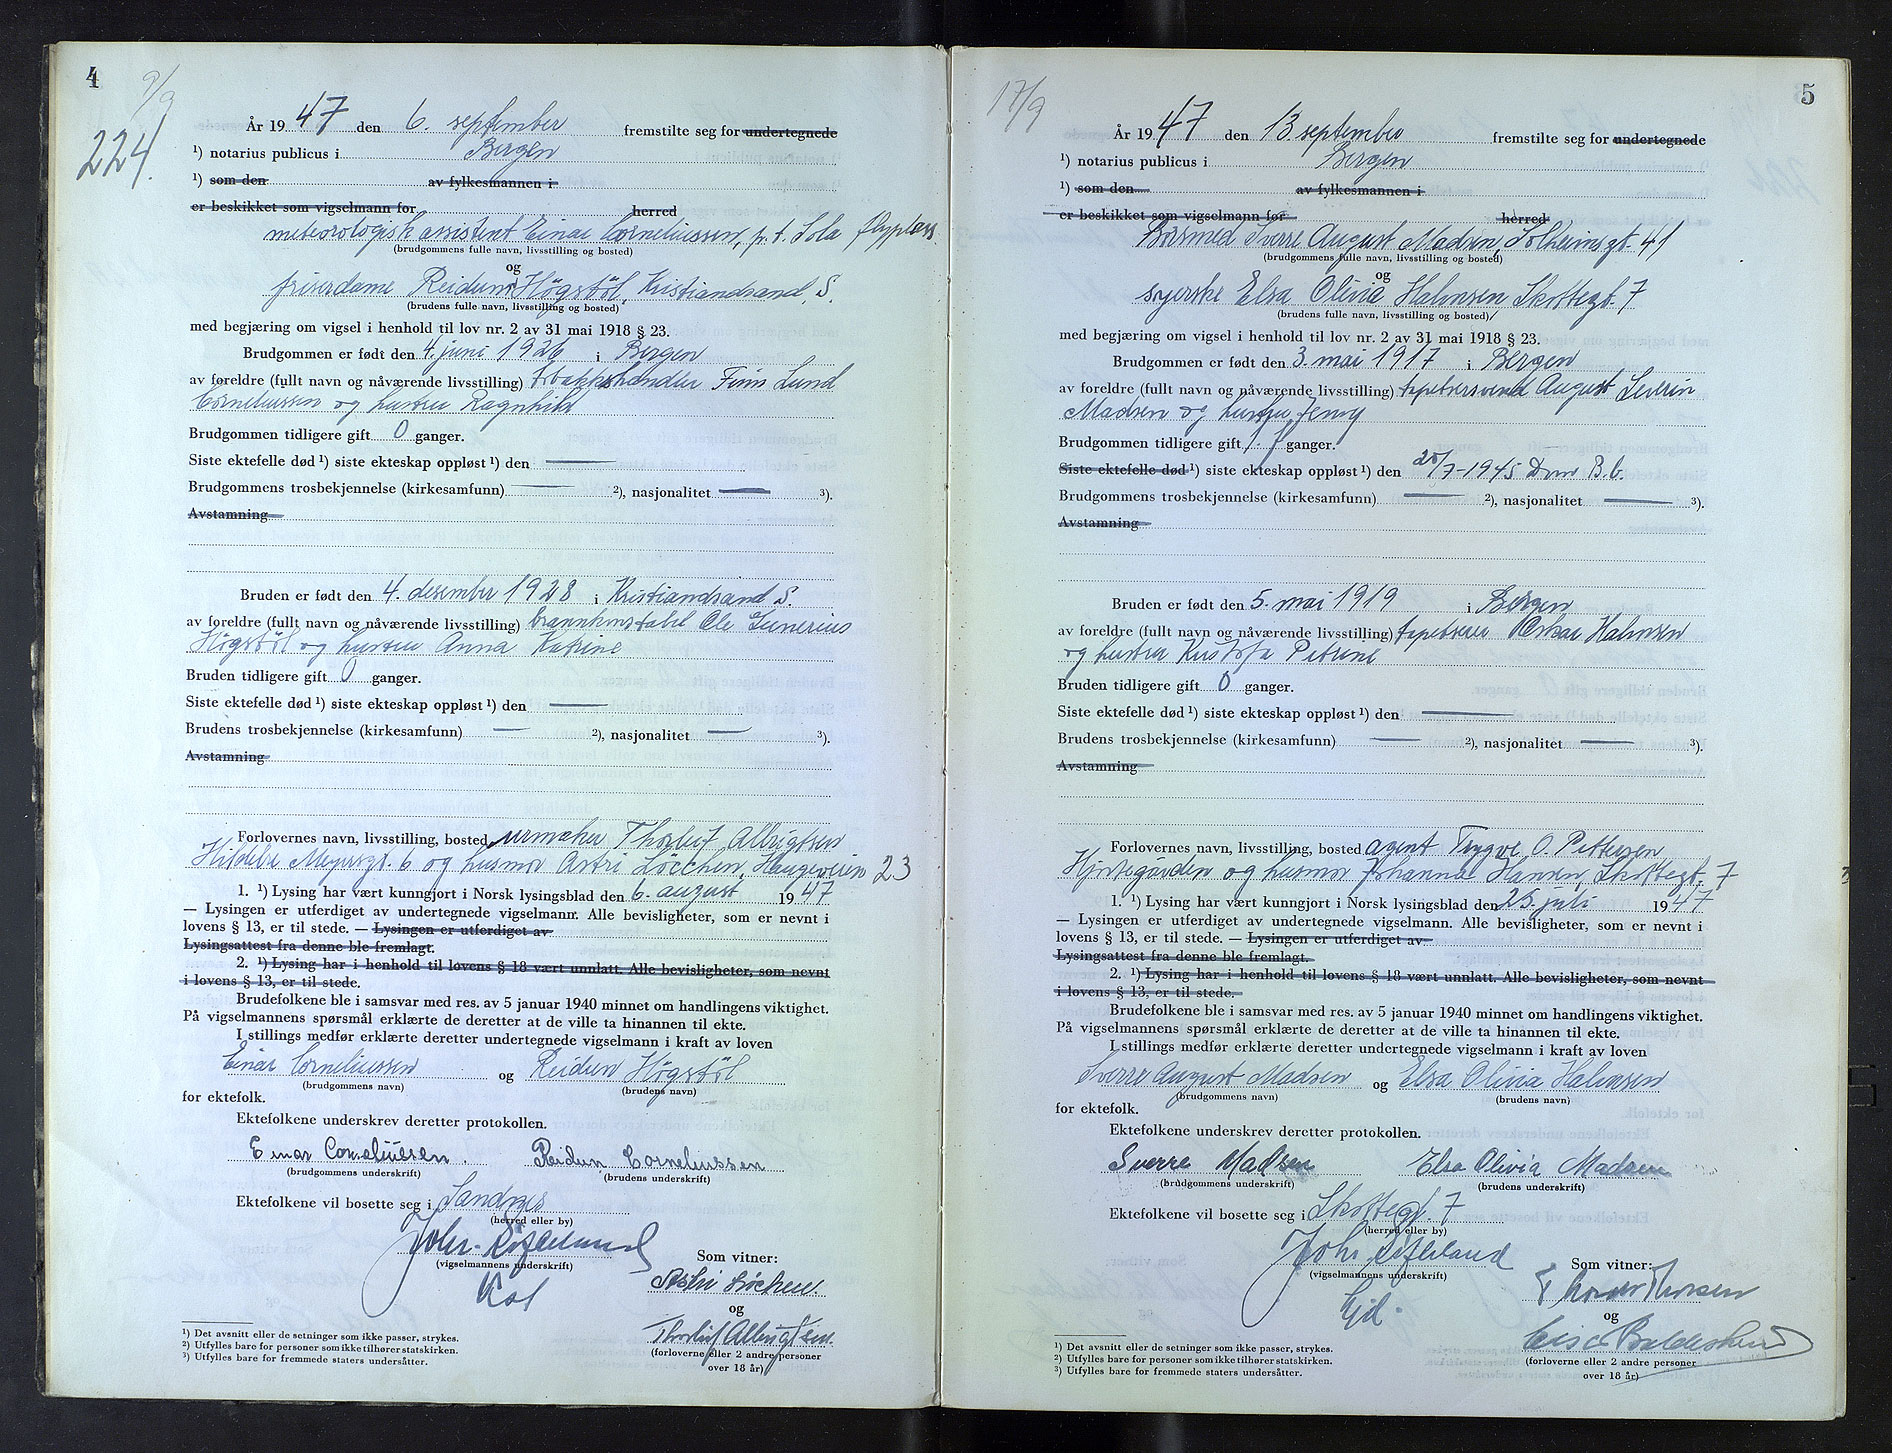 4
9/9
224.
År 1947 den 6. september fremstilte seg for undertegnede
¹) notarius publicus i Bergen
¹) som den av fylkesmannen i
er beskikket som vigselmann for herred
meteorologisk assistent Einar Corneliussen, p.t. Sola flyplass
(brudgommens fulle navn, livsstilling og bosted)
og
friserdame Reidun Högstöl, Kristiandsand S.
(brudens fulle navn, livsstilling og bosted)
med begjæring om vigsel i henhold til lov nr. 2 av 31 mai 1918 § 23.
Brudgommen er født den 4. juni 1926 i Bergen
av foreldre (fullt navn og nåværende livsstilling) tobakkshandler Finn Lund
Corneliussen og hustru Ragnhild
Brudgommen tidligere gift 0 ganger.
Siste ektefelle død ¹) siste ekteskap oppløst ¹) den —
Brudgommens trosbekjennelse (kirkesamfunn) — ²), nasjonalitet — ³).
Avstamning
Bruden er født den 4. desember 1928 i Kristiandsand S.
av foreldre (fullt navn og nåværende livsstilling) brannkonstabel Ole Gunerius
Högstöl og hustru Anna Katrine
Bruden tidligere gift 0 ganger.
Siste ektefelle død ¹) siste ekteskap oppløst ¹) den —
Brudens trosbekjennelse (kirkesamfunn) — ²), nasjonalitet — ³).
Avstamning
Forlovernes navn, livsstilling, bosted urmaker Thorleif Albrigtsen
Hildebr. Meyersgt. 6 og husmor Astri Lötchen, Haugeveien 23
1. ¹) Lysing har vært kunngjort i Norsk lysingsblad den 6. august 1947
— Lysingen er utferdiget av undertegnede vigselmann. Alle bevisligheter, som er nevnt i
lovens § 13, er til stede. — Lysingen er utferdiget av
Lysingsattest fra denne ble fremlagt.
2. ¹) Lysing har i henhold til lovens § 18 vært unnlatt. Alle bevisligheter, som nevnt
i lovens § 13, er til stede.
Brudefolkene ble i samsvar med res. av 5 januar 1940 minnet om handlingens viktighet.
På vigselmannens spørsmål erklærte de deretter at de ville ta hinannen til ekte.
I stillings medfør erklærte deretter undertegnede vigselmann i kraft av loven
Einar Corneliussen og Reidun Högstöl
(brudgommens navn) (brudens navn)
for ektefolk.
Ektefolkene underskrev deretter protokollen.
Einar Corneliussen. Reidun Corneliussen
(brudgommens underskrift) (brudens underskrift)
Ektefolkene vil bosette seg i Sandnes
(herred eller by)
(vigselmannens underskrift)
Som vitner:
Astri
og
Thorleif Albrigtsen.
(forloverne eller 2 andre personer
over 18 år)
¹) Det avsnitt eller de setninger som ikke passer, strykes.
²) Utfylles bare for personer som ikke tilhører statskirken.
³) Utfylles bare for fremmede staters undersåtter.
5
17/9
År 1947 den 13 september fremstilte seg for undertegnede
¹) notarius publicus i Bergen
¹) som den av fylkesmannen i
er beskikket som vigselmann for herred
Sverre August Madsen, Solheimsgt. 41
(brudgommens fulle navn, livsstilling og bosted)
og
syerske Elsa Olivia Halvorsen Skottegt. 7
(brudens fulle navn, livsstilling og bosted)
med begjæring om vigsel i henhold til lov nr. 2 av 31 mai 1918 § 23.
Brudgommen er født den 3. mai 1917 i Bergen
av foreldre (fullt navn og nåværende livsstilling) tapetsersvend August Severin
Madsen og hustru Jenny
Brudgommen tidligere gift 1 ganger.
Siste ektefelle død ¹) siste ekteskap oppløst ¹) den 20/7-1945 Dom B.b.
Brudgommens trosbekjennelse (kirkesamfunn) — ²), nasjonalitet — ³).
Avstamning
Bruden er født den 5. mai 1919 i Bergen
av foreldre (fullt navn og nåværende livsstilling) tapetserer Oskar Halvorsen
og hustru Kristofa Petrine
Bruden tidligere gift 0 ganger.
Siste ektefelle død ¹) siste ekteskap oppløst ¹) den —
Brudens trosbekjennelse (kirkesamfunn) — ²), nasjonalitet — ³).
Avstamning
Forlovernes navn, livsstilling, bosted agent Trygve O. Pettersen
Hjortegården og husmor Johanna Hansen, Skottegt. 7
1. ¹) Lysing har vært kunngjort i Norsk lysingsblad den 25. juli 1947
— Lysingen er utferdiget av undertegnede vigselmann. Alle bevisligheter, som er nevnt i
lovens § 13, er til stede. — Lysingen er utferdiget av
Lysingsattest fra denne ble fremlagt.
2. ¹) Lysing har i henhold til lovens § 18 vært unnlatt. Alle bevisligheter, som nevnt
i lovens § 13, er til stede.
Brudefolkene ble i samsvar med res. av 5 januar 1940 minnet om handlingens viktighet.
På vigselmannens spørsmål erklærte de deretter at de ville ta hinannen til ekte.
I stillings medfør erklærte deretter undertegnede vigselmann i kraft av loven
Sverre August Madsen og Elsa Olivia Halvorsen
(brudgommens navn) (brudens navn)
for ektefolk.
Ektefolkene underskrev deretter protokollen.
Sverre Madsen Elsa Olivia Madsen
(brudgommens underskrift) (brudens underskrift)
Ektefolkene vil bosette seg i Skottegt. 7
(herred eller by)
(vigselmannens underskrift)
Som vitner:
og
(forloverne eller 2 andre personer
over 18 år)
¹) Det avsnitt eller de setninger som ikke passer, strykes.
²) Utfylles bare for personer som ikke tilhører statskirken.
³) Utfylles bare for fremmede staters undersåtter.